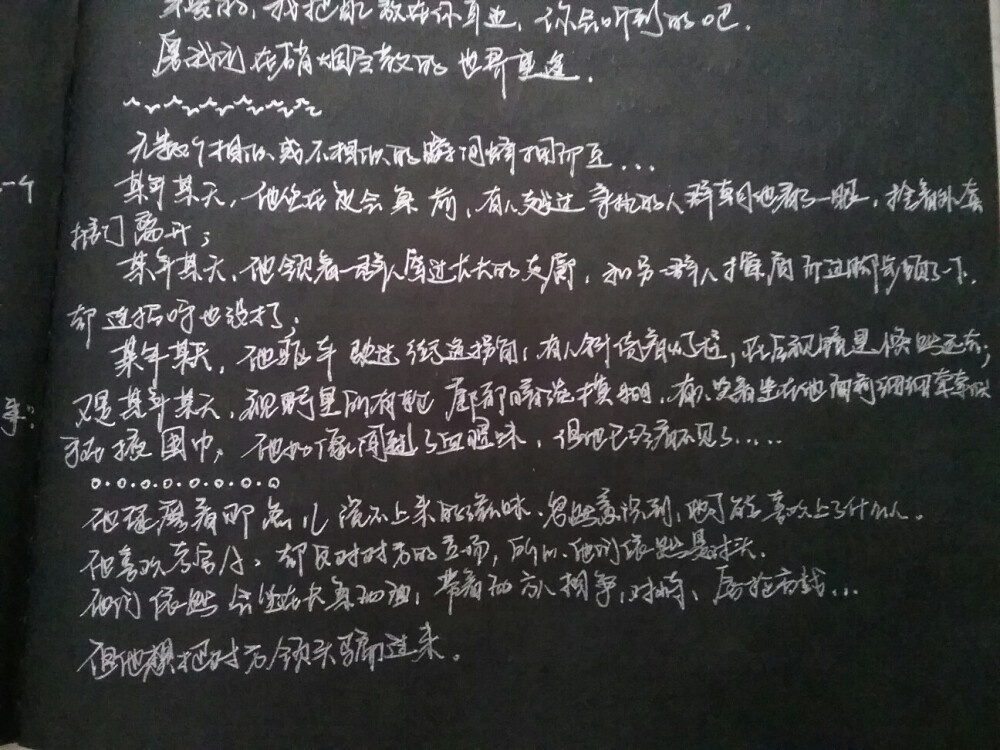 亲爱的，我把配数在你耳边，你会听到的吧.
愿我们在硝烟尽散的世界重逢.
无数个相似或不相似的瞬间蜂拥而至...
一个
某年某天，他坐在议会桌前，有人越过身边的人群朝他看了一眼，拎着外套
推门离开；
某年某天，他领着一群人穿过长长的走廊，和另一群人擦肩而过脚步顿了一下，
却连招呼也没打；
某年某天，他驱车驶过街道拐角，有人斜倚着灯柱，在后视镜里倏然远去；
又是某年某天，视野里所有轮廓都暗淡模糊，有人笑着坐在他面前细细索索似
在换围巾，他好像闻到了血腥味，但他已经看不见了.....
他琢磨着那点儿说不上来的滋味，忽然意识到，他可能喜欢上了什么人.
他喜欢对方，却反对对方的立场，所以他们依然是对头.
他们依然会坐在长桌两边，带着两方人相争，对峙、唇枪舌战...
但他想把对方领头骗过来.